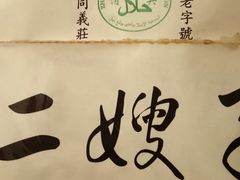 同義莊
حلال
老字號
二嫂